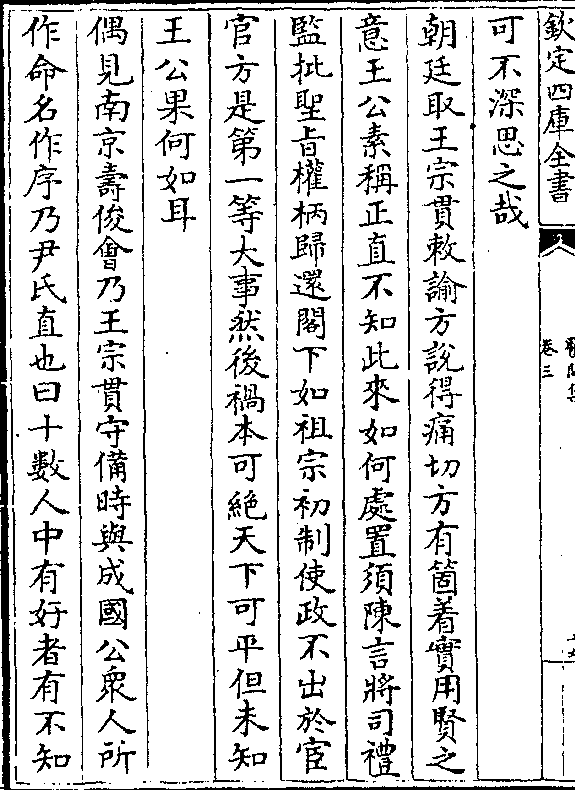 欽定四庫全書
卷三
可不深思之哉
朝廷取王宗貫敕諭方說得痛切方有箇着實用賢之
意王公素稱正直不知此來如何處置須陳言將司禮
監批聖旨權柄歸還閣下如祖宗初制使政不出於宦
官方是第一等大事然後禍本可絶天下可平但未知
王公果何如耳
偶見南京壽俊會乃王宗貫守備時與成國公衆人所
作命名作序乃尹氏直也曰十數人中有好者有不知